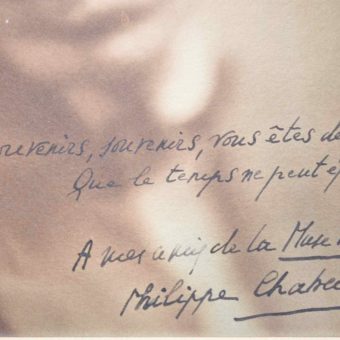 ouvenirs, souvenirs, vous êtes de
Que le temps ne peut é
A mes amis de la Muse
Philippe Chabe